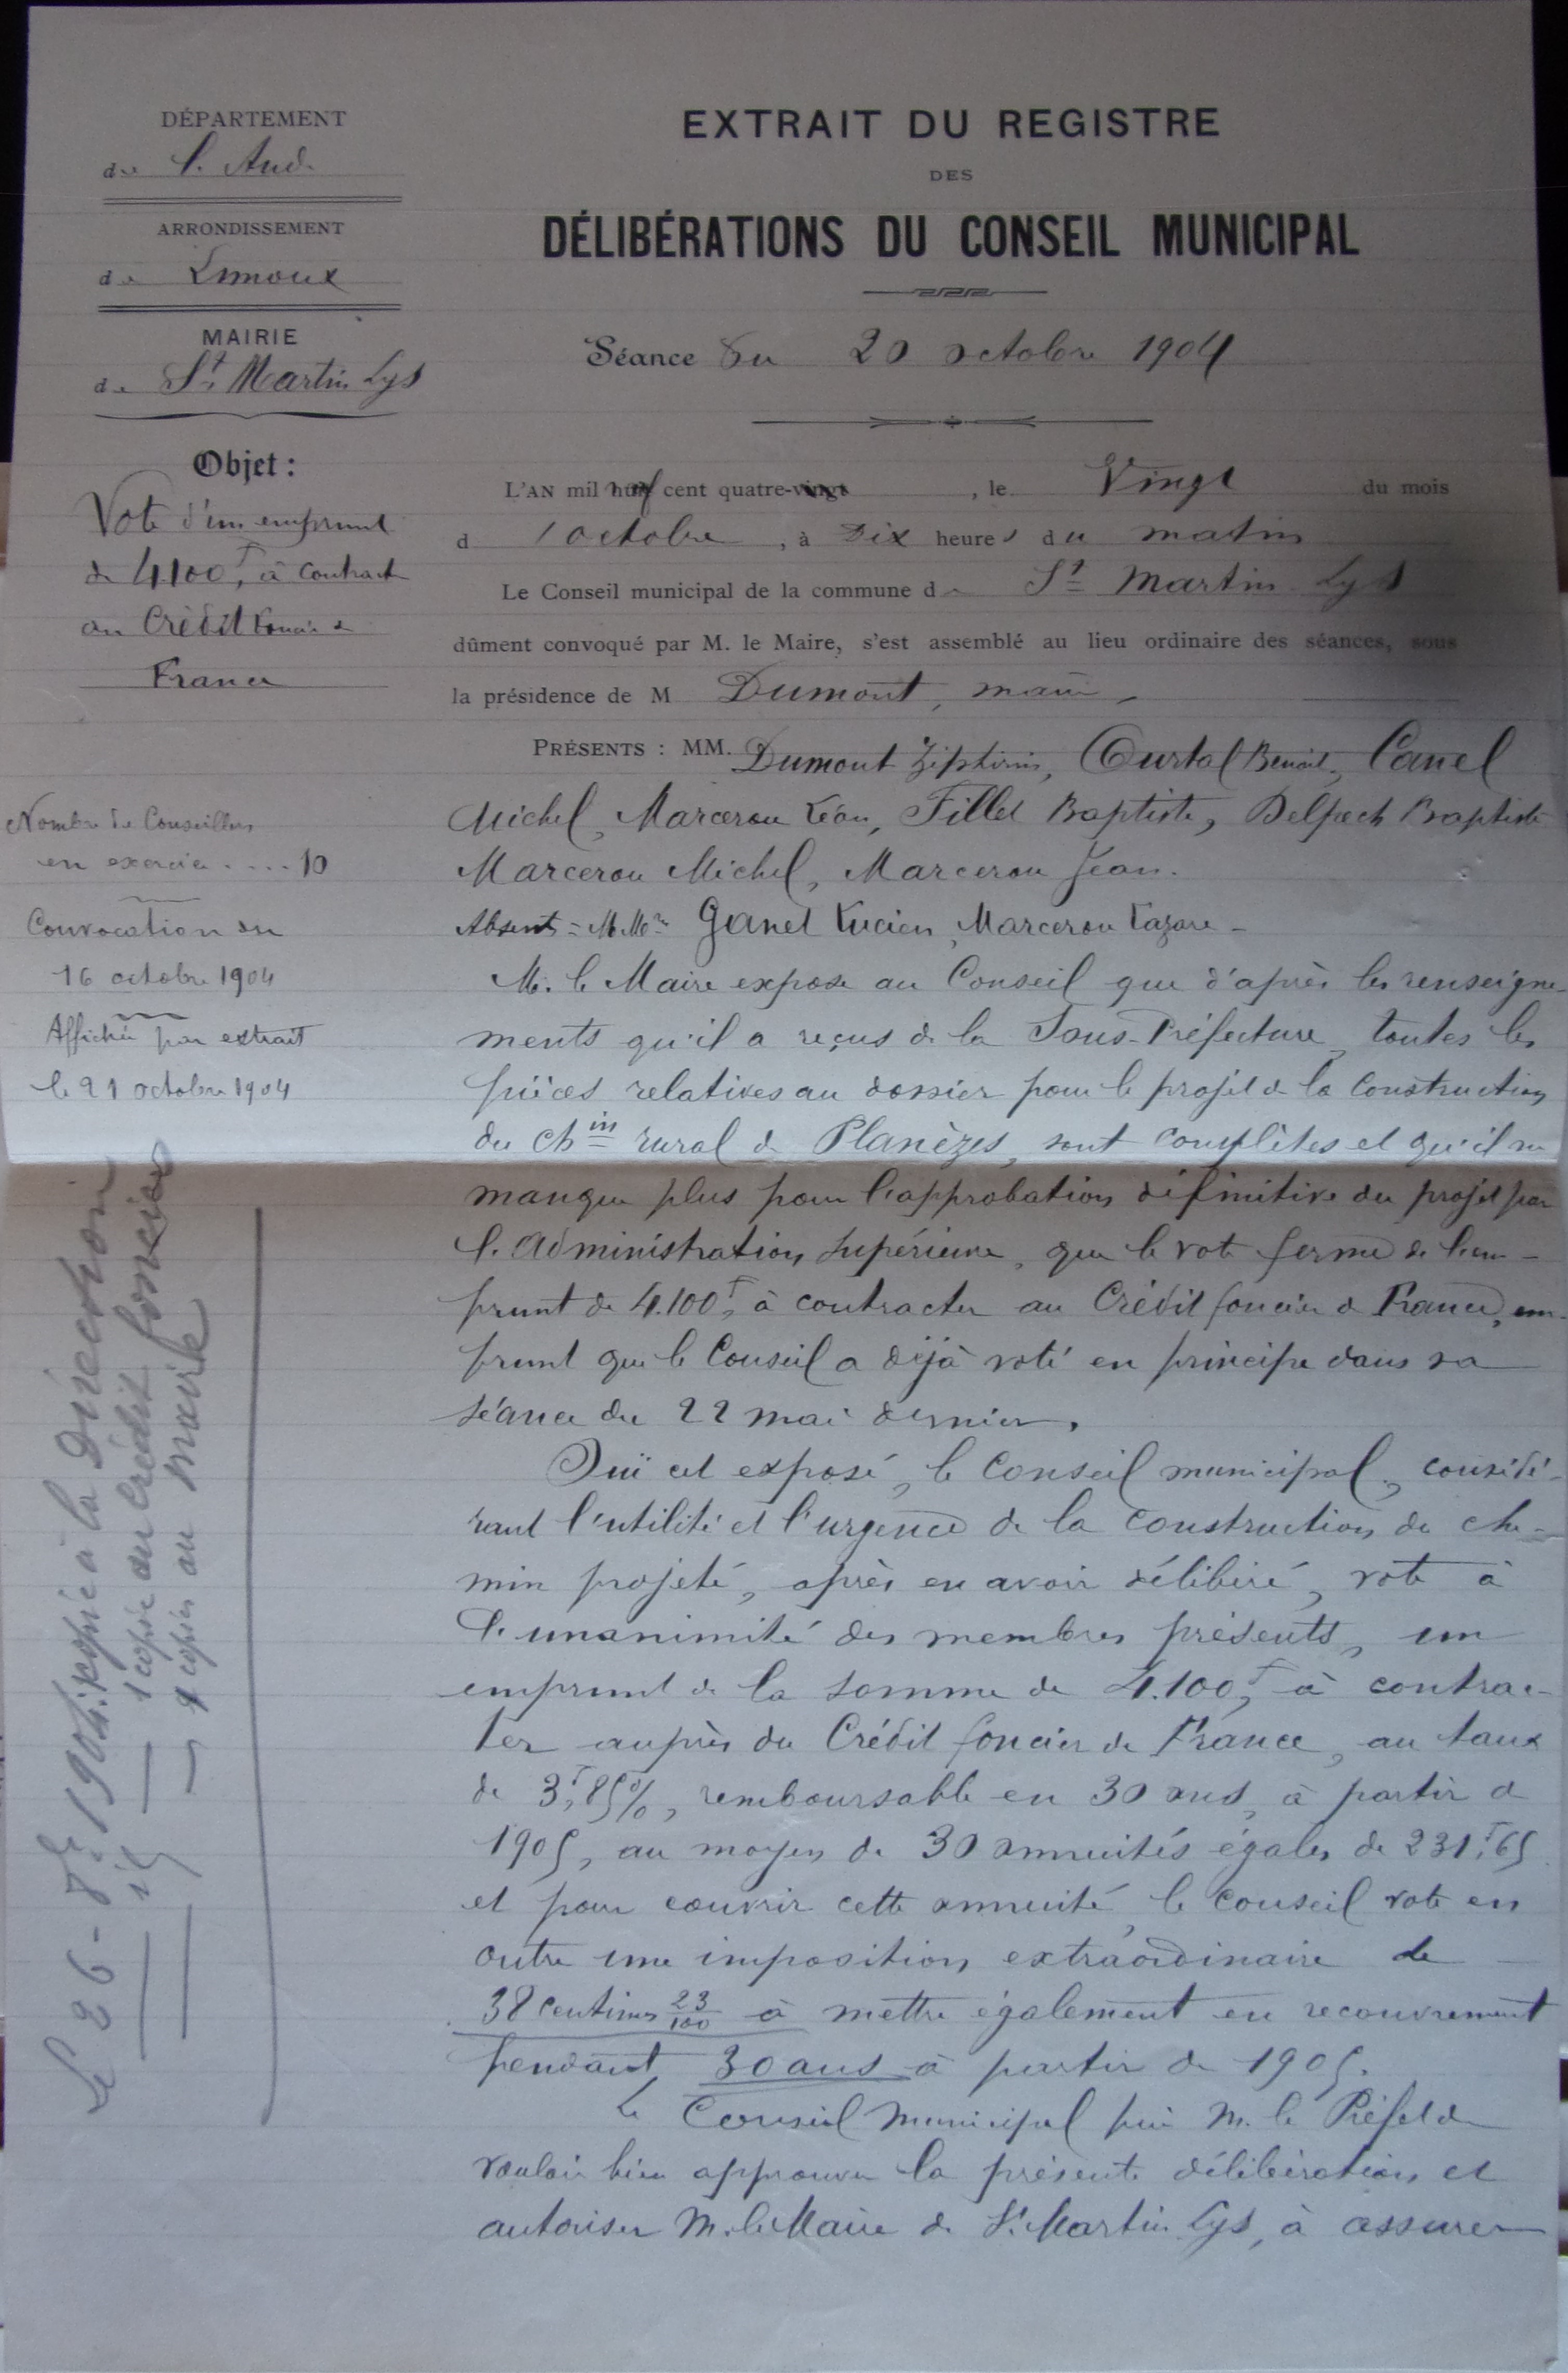 DÉPARTEMENT
de l'Aude
ARRONDISSEMENT
de Limoux
MAIRIE
de St Martin Lys
Objet :
Vote d'un emprunt
de 4100f, à contracter
au Crédit foncier de
France
Nombre de Conseillers
en exercice .... 10
Convocation du
16 octobre 1904
Affichée par extrait
le 21 octobre 1904
Le 26 - 8bre 1904. 1 copie à la Direction
id — 1 copie au Crédit foncier
— — copies au maire
EXTRAIT DU REGISTRE
DES
DÉLIBÉRATIONS DU CONSEIL MUNICIPAL
Séance du 20 octobre 1904
L'AN mil neuf cent quatre-vingt , le Vingt du mois
d'octobre , à Dix heures du matin
Le Conseil municipal de la commune de St Martin Lys
dûment convoqué par M. le Maire, s'est assemblé au lieu ordinaire des séances, sous
la présidence de M Dumont, maire,
PRÉSENTS : MM. Dumont Zéphirin, Courtal Benoit, Canel
Michel, Marcerou Léon, Fillet Baptiste, Delpech Baptiste
Marcerou Michel, Marcerou Jean.
Absents = M.Mrs Ganet Lucien, Marcerou Lazare -
M. le Maire expose au Conseil que d'après les renseigne-
ments qu'il a reçus de la Sous-Préfecture, toutes les
pièces relatives au dossier pour le projet de la construction
du chin rural de Planèzes, sont complètes et qu'il ne
manque plus pour l'approbation définitive du projet par
l'Administration supérieure, que le vote ferme de l'em-
prunt de 4.100f, à contracter au Crédit foncier de France, em-
prunt que le Conseil a déjà voté en principe dans sa
séance du 22 mai dernier.
Ouï cet exposé, le Conseil municipal, considé-
rant l'utilité et l'urgence de la construction du che-
min projeté, après en avoir délibéré, vote à
l'unanimité des membres présents, un
emprunt de la somme de 4.100f, à contrac-
ter auprès du Crédit foncier de France, au taux
de 3f,85%, remboursable en 30 ans, à partir de
1905, au moyen de 30 annuités égales de 231f,65
et pour couvrir cette annuité, le conseil vote en
outre une imposition extraordinaire de
38 centimes 23/100 à mettre également en recouvrement
pendant 30 ans à partir de 1905.
Le Conseil municipal prie M. le Préfet de
vouloir bien approuver la présente délibération et
autoriser M. le Maire de St Martin Lys, à assurer